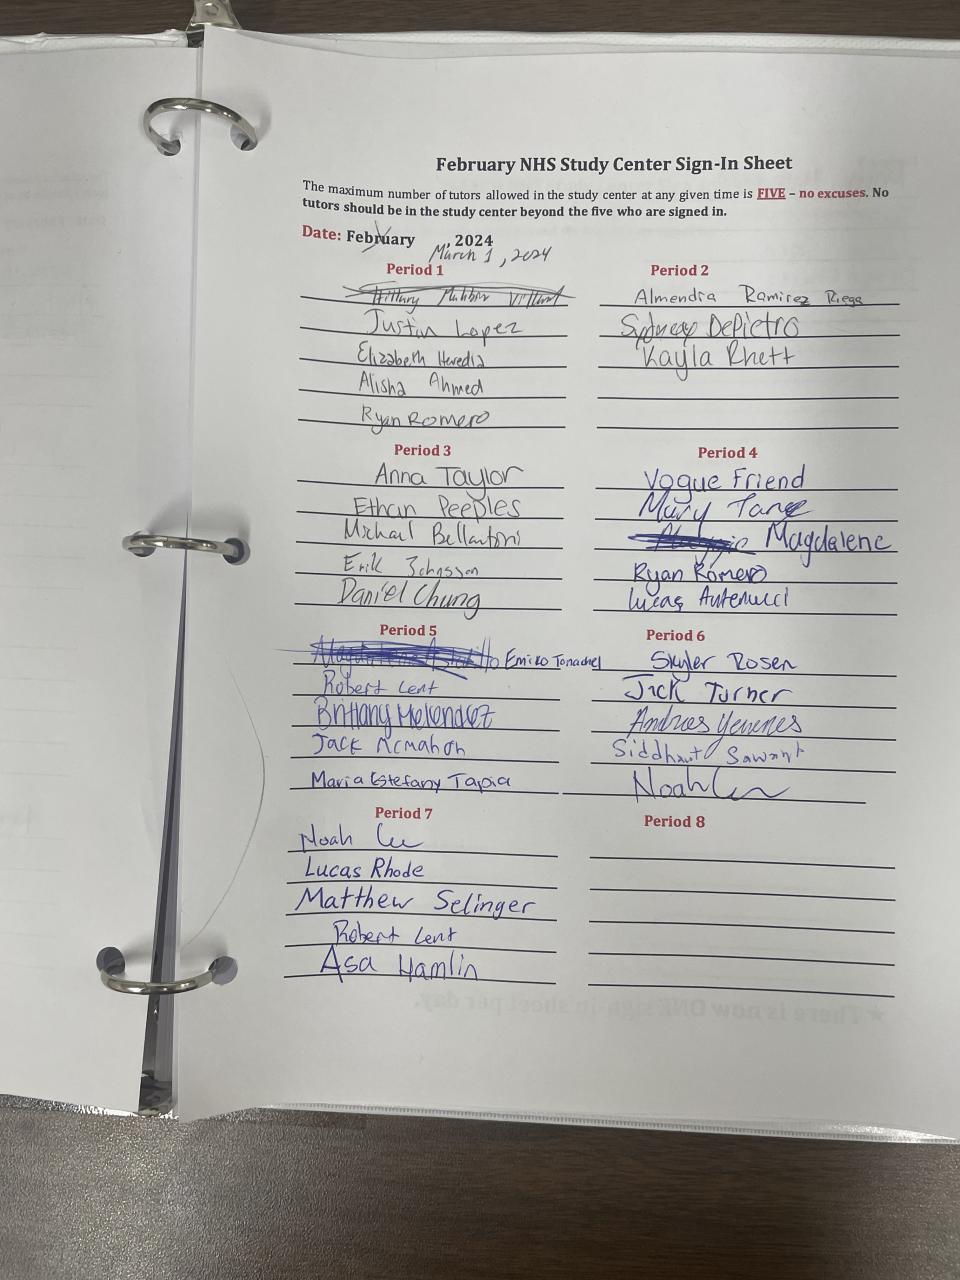 February NHS Study Center Sign-In Sheet
The maximum number of tutors allowed in the study center at any given time is FIVE – no excuses. No
tutors should be in the study center beyond the five who are signed in.
Date: February , 2024
March 1, 2024
Period 1
Hillary
Justin Lopez
Elizabeth Heredia
Alisha Ahmed
Ryan Romero
Period 2
Almendra Ramirez Riega
Sydney DePietro
Kayla Rhett
Period 3
Anna Taylor
Ethan Peeples
Michael Bellantoni
Erik Johnsson
Daniel Chung
Period 4
Vogue Friend
Mary Tang
Magdalene
Ryan Romero
Lucas Antenucci
Period 5
Emiko Tonachel
Robert Lent
Brittany Melendez
Jack McMahon
Maria Estefany Tapia
Period 6
Skyler Rosen
Jack Turner
Andres Yevenes
Siddhant Sawant
Noah
Period 7
Noah
Lucas Rhode
Matthew Selinger
Robert Lent
Asa Hamlin
Period 8
★ There is now ONE sign-in sheet per day.